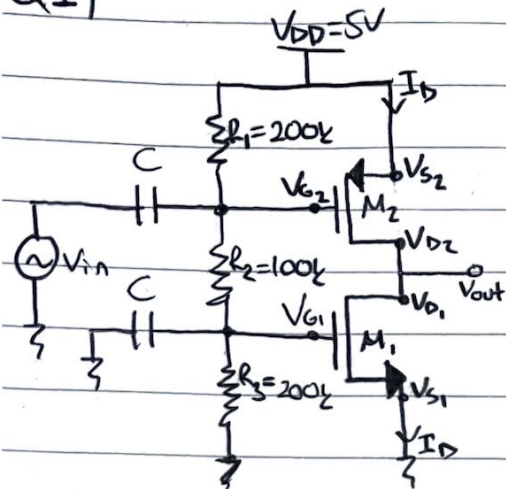 Q1
V_DD=5V
I_D
R_1=200k
C
V_S2
V_G2
M_2
V_D2
V_in
R_2=100k
V_out
C
V_D1
V_G1
M_1
R_3=200k
V_S1
I_D